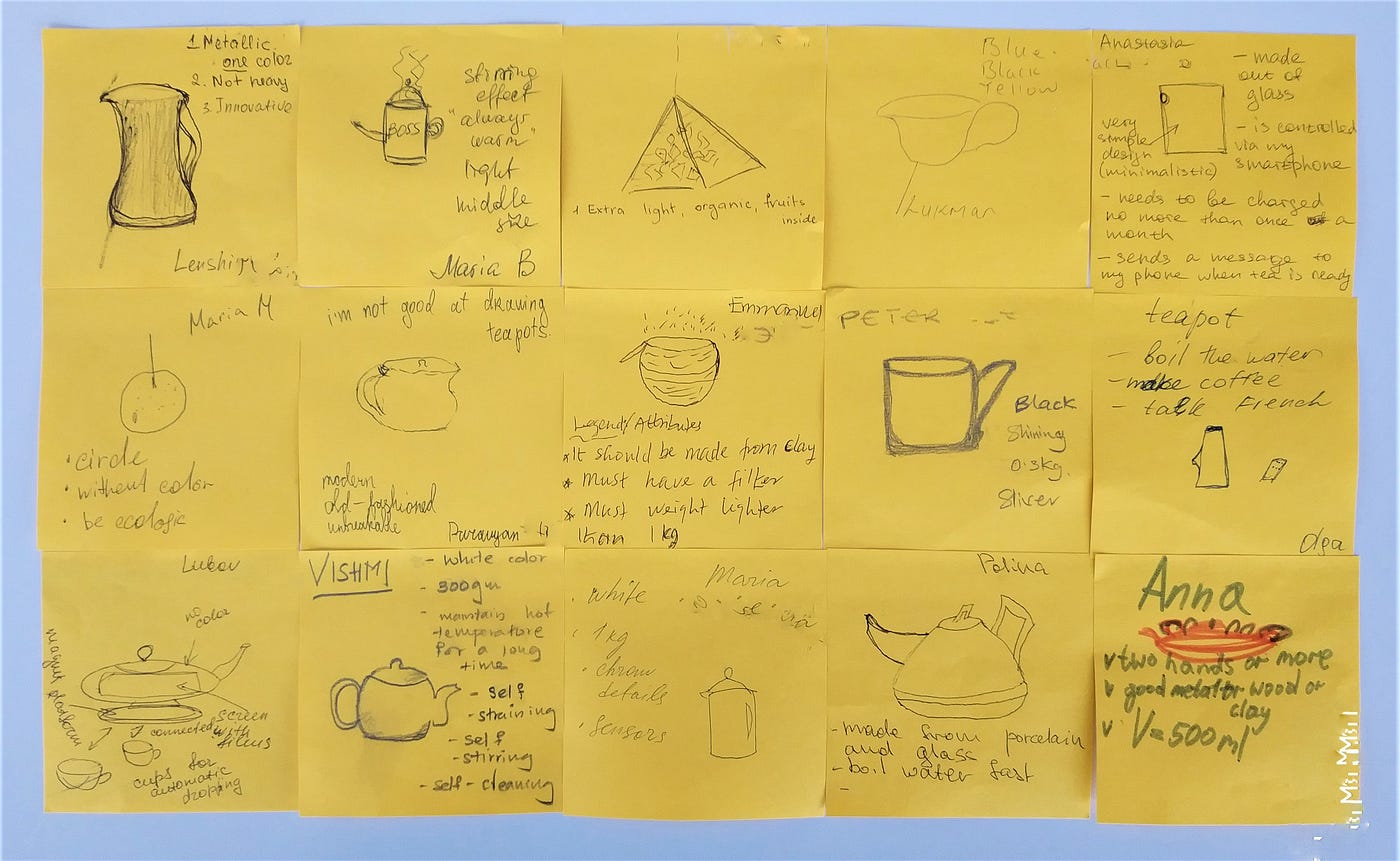 1. Metallic
one color
2. Not heavy
3. Innovative
Lenshim
stirring
effect
"always
warm"
light
middle
size
BOSS
Maria B
1 Extra light, organic, fruits
inside
Blue.
Black
Yellow
Lukman
Anastasia
- made
out of
glass
- is controlled
via my
smartphone
very
simple
design
(minimalistic)
- needs to be charged
no more than once a
month
- sends a message to
my phone when tea is ready
Maria M
• circle
• without color
• be ecologic
i'm not good at drawing
teapots.
modern
old-fashioned
unbreakable
Emmanuel
Legend/Attributes
* It should be made from clay
* Must have a filter
* Must weight lighter
than 1kg
PETER
Black
Shining
0.3kg.
Sliver
teapot
- boil the water
- make coffee
- talk French
Olga
Lubov
no
color
magnit platform
connected
screen
with
films
cups for
automatic
droping
VISHMI
- white color
- 300gm
- maintain hot
temperature
for a long
time
- self
- straining
- self
- stirring
- self-cleaning
Maria
• white
• 1 kg
• chrom
details
• sensors
Polina
- made from porcelain
and glass
- boil water fast
-
Anna
v two hands or more
v good metal or wood or
clay
v V=500ml